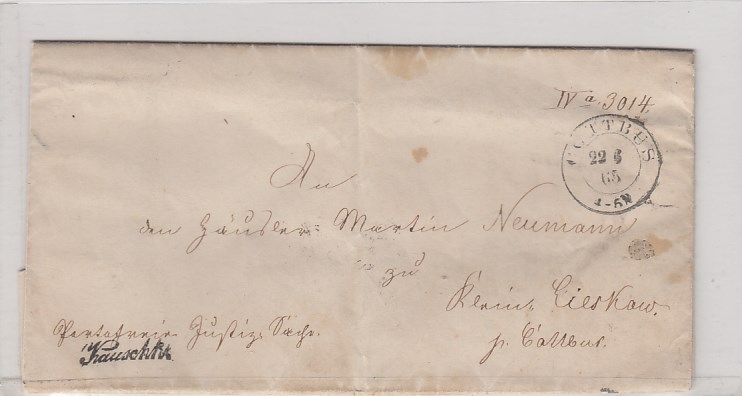 IV a. 3014.
COTTBUS
22 6
65
4-5N
An
den Häusler Martin Neumann
zu
Klein Lieskow.
p. Cottbus.
Portofreie Justiz-Sache.